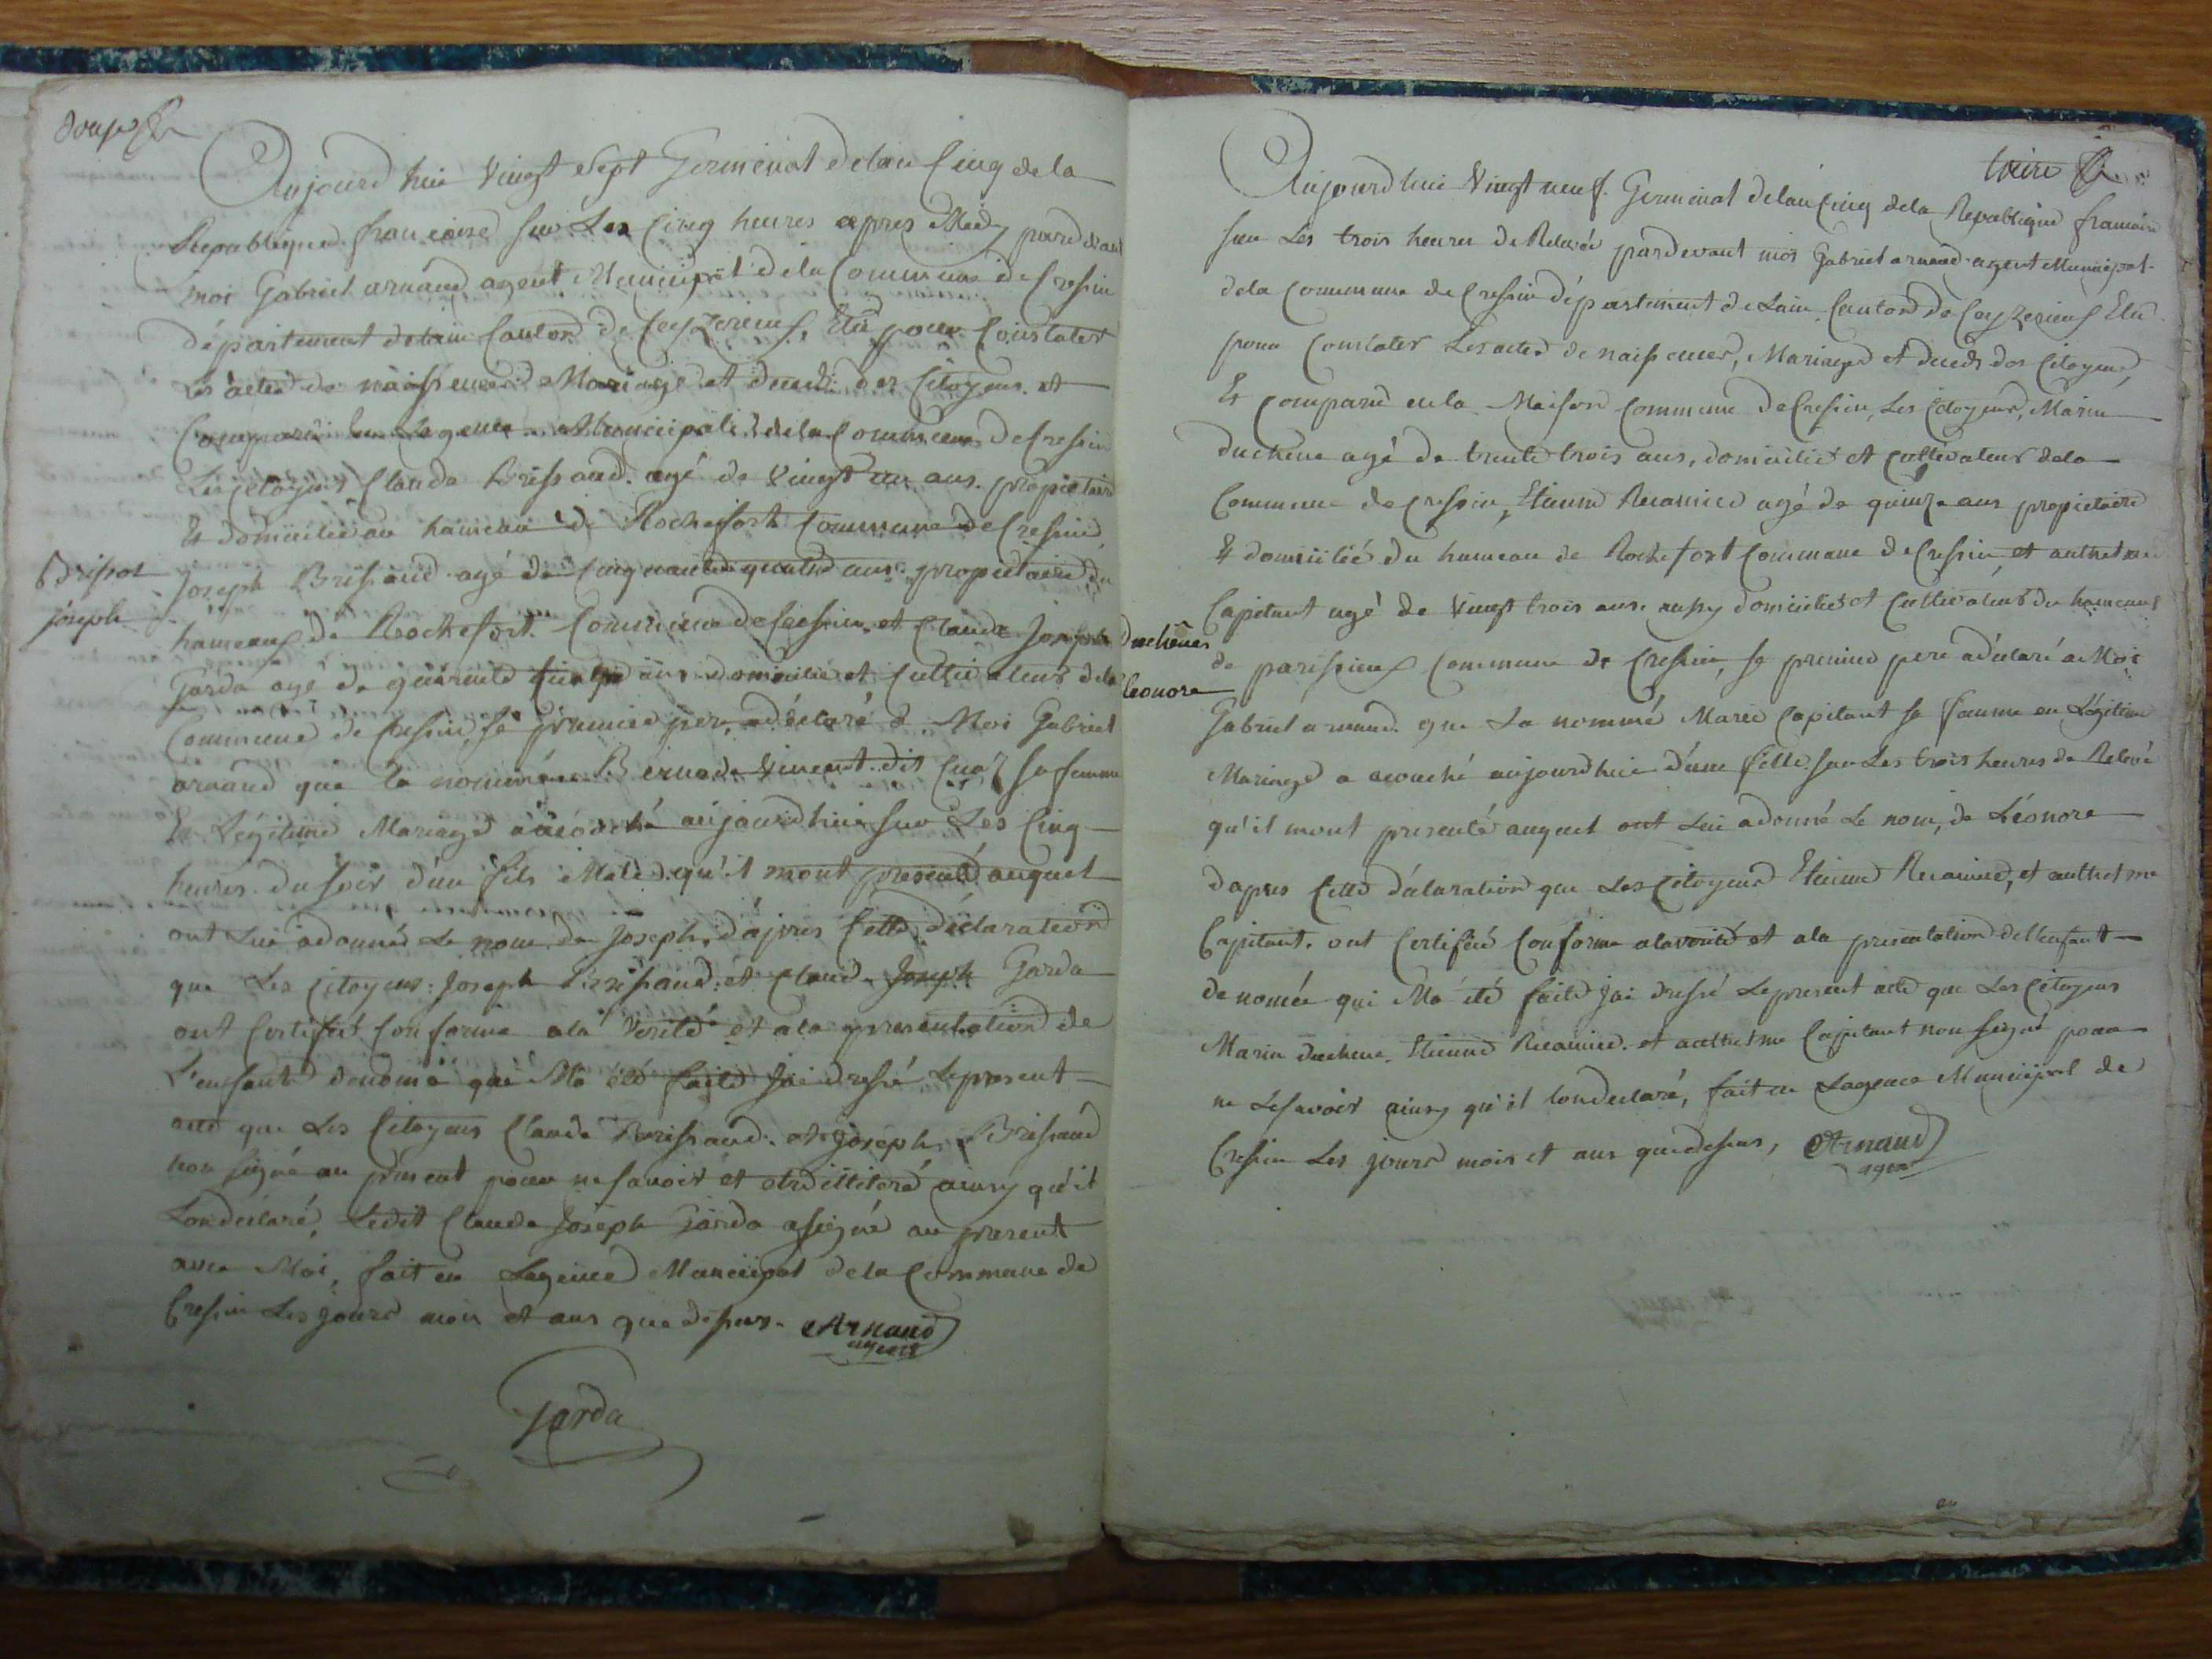 douze
Aujourd huie vingt sept Germinal delan Cinq dela
Republique francaise sur Les Cinq heures apres Midy pardevant
moi Gabriel arnaud agent Municipal dela Commune de Cressin
département delain Canton de Ceyzerieuf, Elu pour Constater
Les actes de naissences Mariage et deceds des Citoyens et
Comparu En Lagence Municipali dela Commune de Cressin
Les Citoyens Claude Brissaud agé de vingt un ans propietaire
Et domicilié au hameau de Rochefort Commune de Cressin
Brissot
joseph
Joseph Brissaud agé de Cinquante quatre ans propietaire du
hameaux de Rochefort Commune de Cressin et Claude Joseph
Garda agé de quarente ans domicilié et Cultivateur dela
Commune de Cressin, Se premier pere, adéclaré à Moi Gabriel
arnaud que la nommée Bernade Vincent dit sa femme
En Légitime Mariage a acouché aujourdhuie sur Les Cinq
heures du soir d'un fils Male qu'il mont presenté auquel
ont Lui adonné Le nom de Joseph, d'apres Cette déclaration
que Les Citoyens Joseph Brissaud et Claude Joseph Garda
ont Certifié Conforme ala Verité et ala presentation de
L'enfant denomé qui Ma été faite Jai dressé Lepresent
acte que Les Citoyens Claude Brissaud et joseph Brissaud
non signé au present pour ne savoir et etre illiteré ainsy qu'il
Londeclaré, Ledit Claude Joseph Garda a signé au present
avec Moi, fait en Lagence Municipal dela Commune de
Cressin Les jours mois et ans que dessus. Arnaud
agent
Garda
treize
Aujourdhuie vingt neuf Germinal delan Cinq dela Republique francaise
sur Les trois heures de Relevée pardevant moi Gabriel arnaud agent Municipal
dela Commune de Cressin département de Lain Canton de Ceyzerieuf Elu
pour Constater Les actes de naissences, Mariages et deceds des Citoyens,
Et Comparu enla Maison Commune de Cressin, Les Citoyens, Marin
duchene agé de trente trois ans, domicilié et Cultivateur dela
Commune de Cressin, Etienne Recamier agé de quinze ans propietaire
Et domicilié du hameau de Rochefort Commune de Cressin et anthelme
Capitant agé de vingt trois ans aussy domicilié et Cultivateur du hameaux
duchênes
Leonore
de parissieux Commune de Cressin, Se premier pere adéclaré a Moi
Gabriel arnaud que La nommée Marie Capitant Sa femme en Légitime
Mariage a acouché aujourdhuie d'une fille sur Les trois heures de Relevé
qu'il mont presenté auquel ont Lui adonné Le nom, de Léonore
dapres Cette déclaration que Les Citoyens Etienne Recamier, et anthelme
Capitant ont Certifié Conforme alaverité et ala presentation del'enfant
denomée qui Ma été faite Jai dressé Lepresent acte que Les Citoyens
Marin duchene Etienne Recamier et anthelme Capitant non signé pour
ne Lesavoir ainsy qu'il londeclaré, fait en Lagence Municipal de
Cressin Les jours mois et ans quedessus, Arnaud
agent